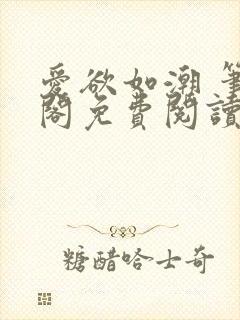 愛欲如潮 筆
閣免費閱讀
糖醋哈士奇